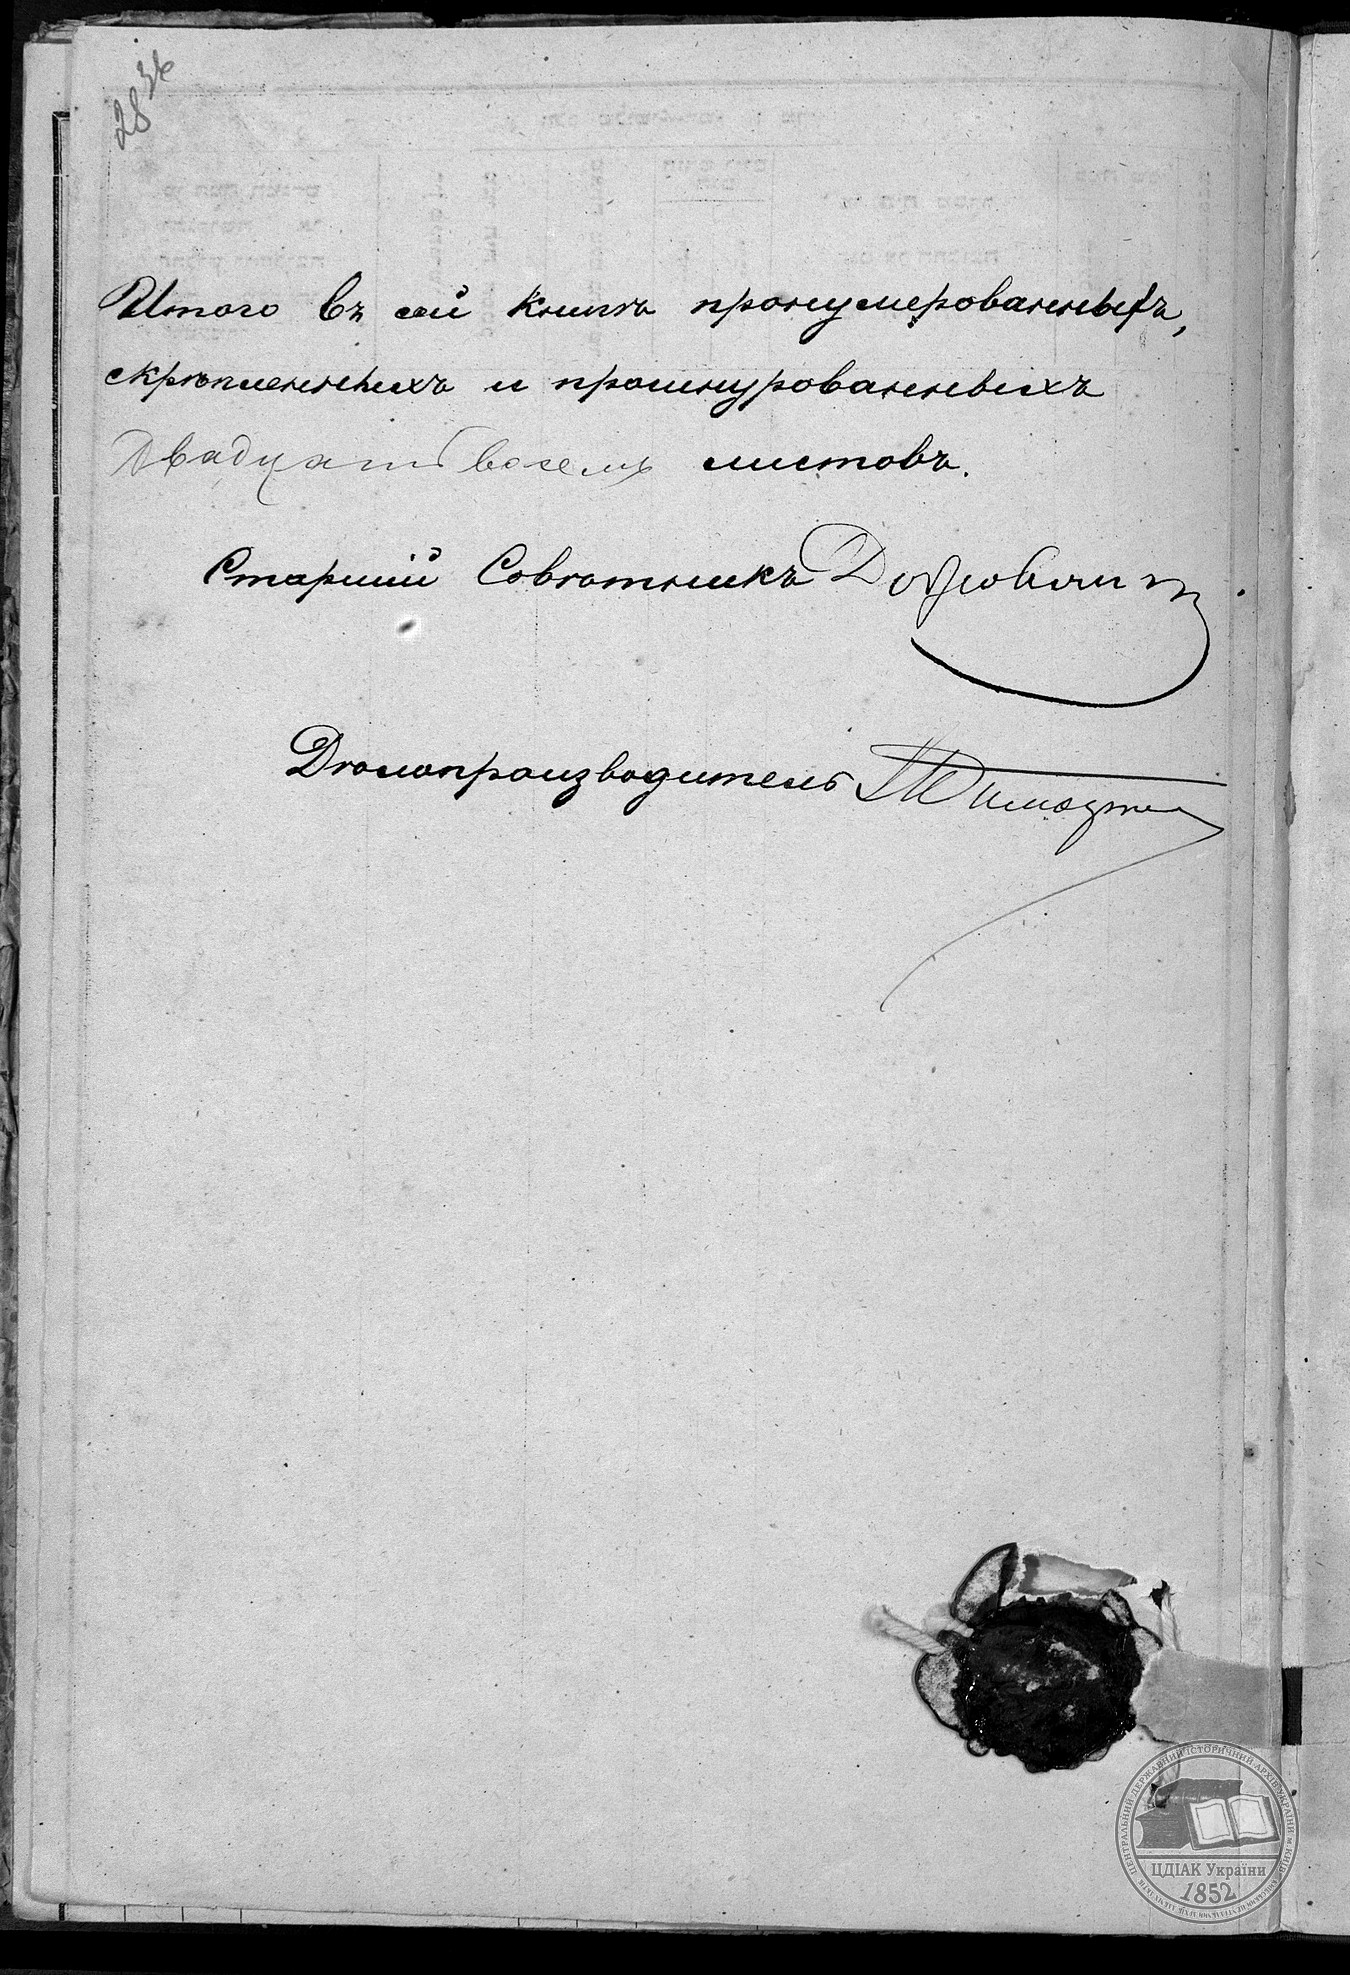 28
Итого въ сей книгѣ пронумерованныхъ,
скрѣпленныхъ и прошнурованныхъ
Двадцать восемь листовъ.
Старшій Совѣтникъ
Дѣлопроизводитель
ЦЕНТРАЛЬНИЙ ДЕРЖАВНИЙ ІСТОРИЧНИЙ АРХІВ УКРАЇНИ м. КИЇВ
ЦДІАК України
1852